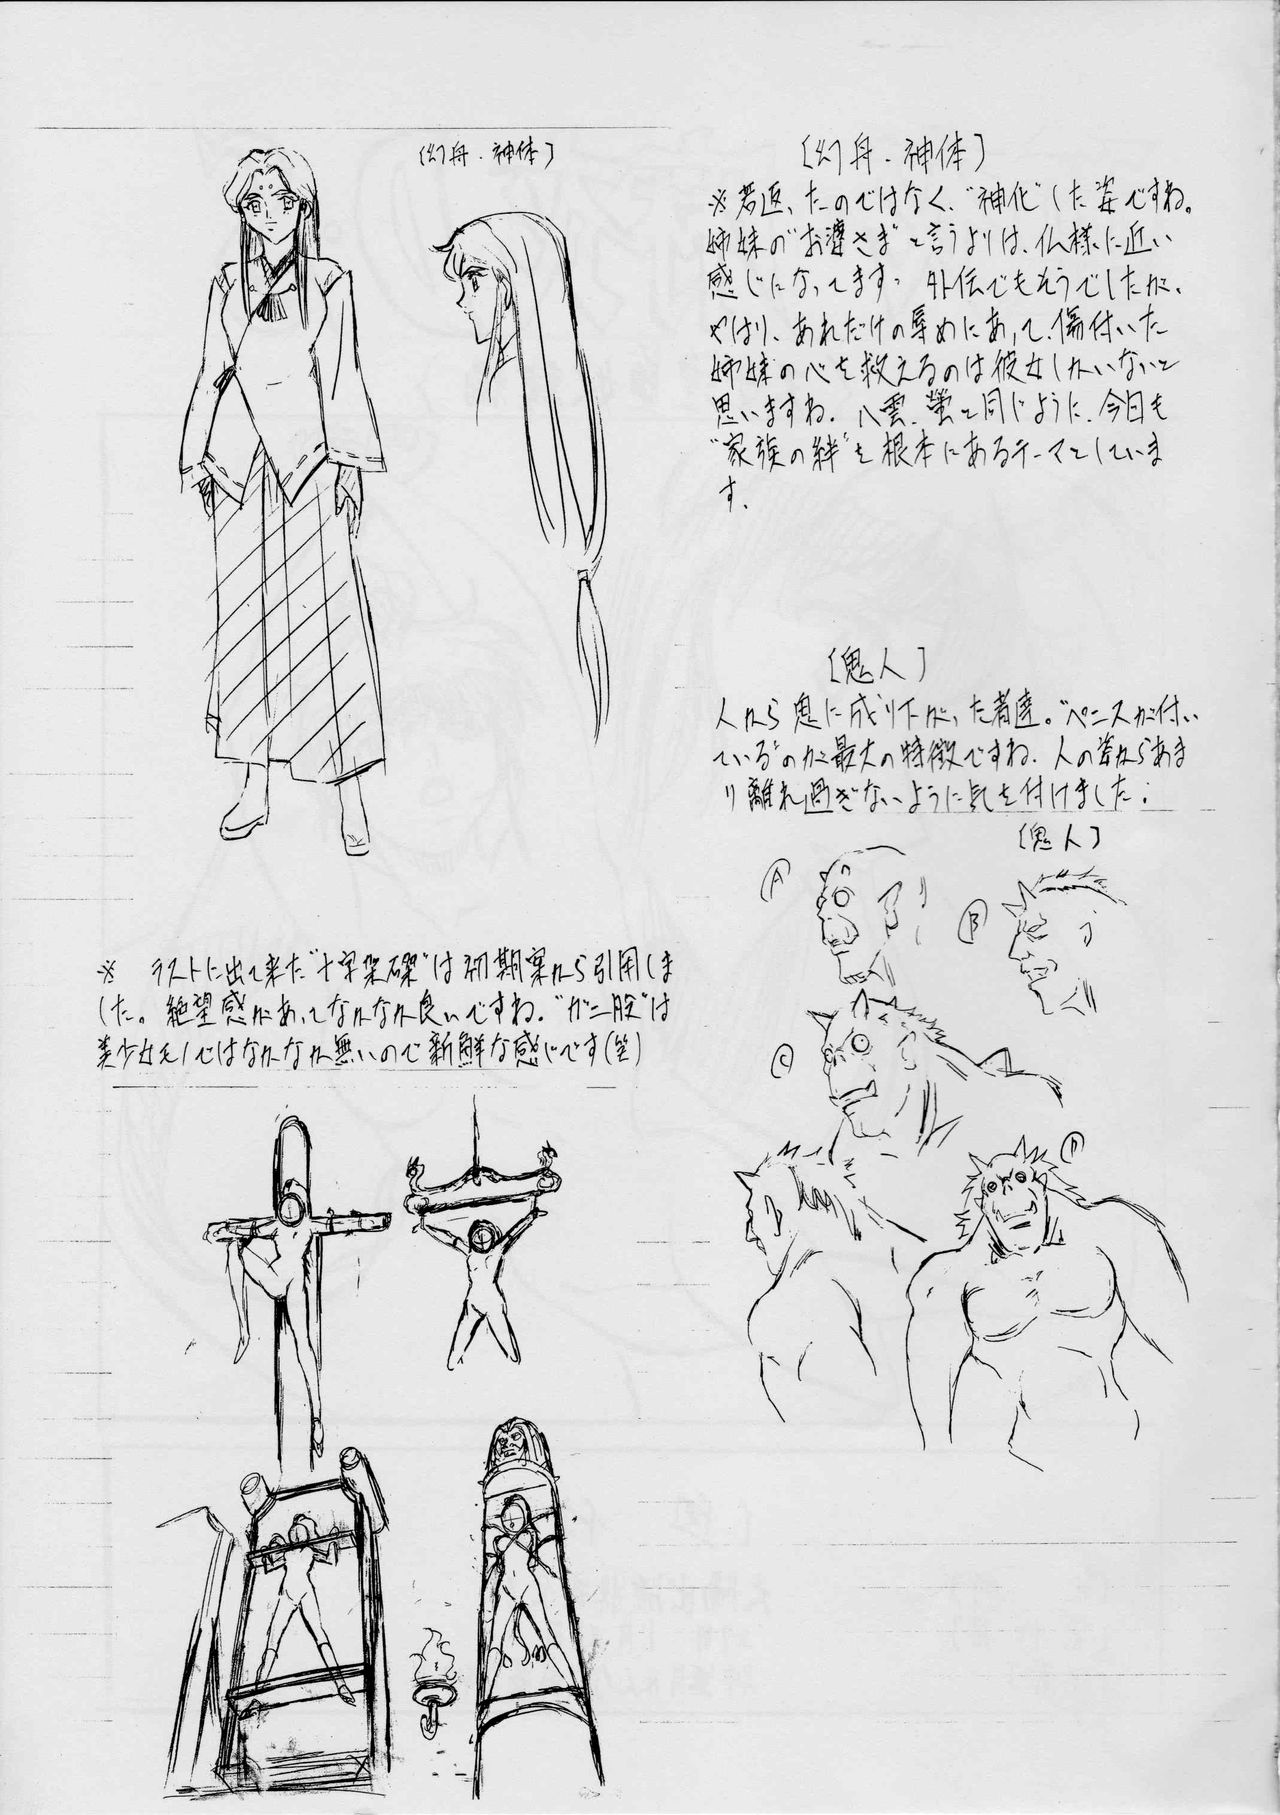 〔幻舟・神体〕
〔幻舟・神体〕
※若返ったのではなく、"神化"した姿ですね。
姉妹の"お婆さま"と言うよりは、仏様に近い
感じになってます。外伝でもそうでしたが、
やはり、あれだけの辱めにあって、傷付いた
姉妹の心を救えるのは彼女しかいないと
思いますね。八雲、蛍と同じように、今日も
"家族の絆"を根本にあるテーマとしていま
す。
〔鬼人〕
人から鬼に成り下がった者達。"ペニスが付い
ている"のが最大の特徴ですね。人の姿からあま
り離れ過ぎないように気を付けました。
〔鬼人〕
Ⓐ
Ⓑ
Ⓒ
Ⓓ
※ ラストに出て来た"十字架磔"は初期案から引用しま
した。絶望感があってなかなか良いですね。"ガニ股"は
美少女モノではなかなか無いので新鮮な感じです(笑)